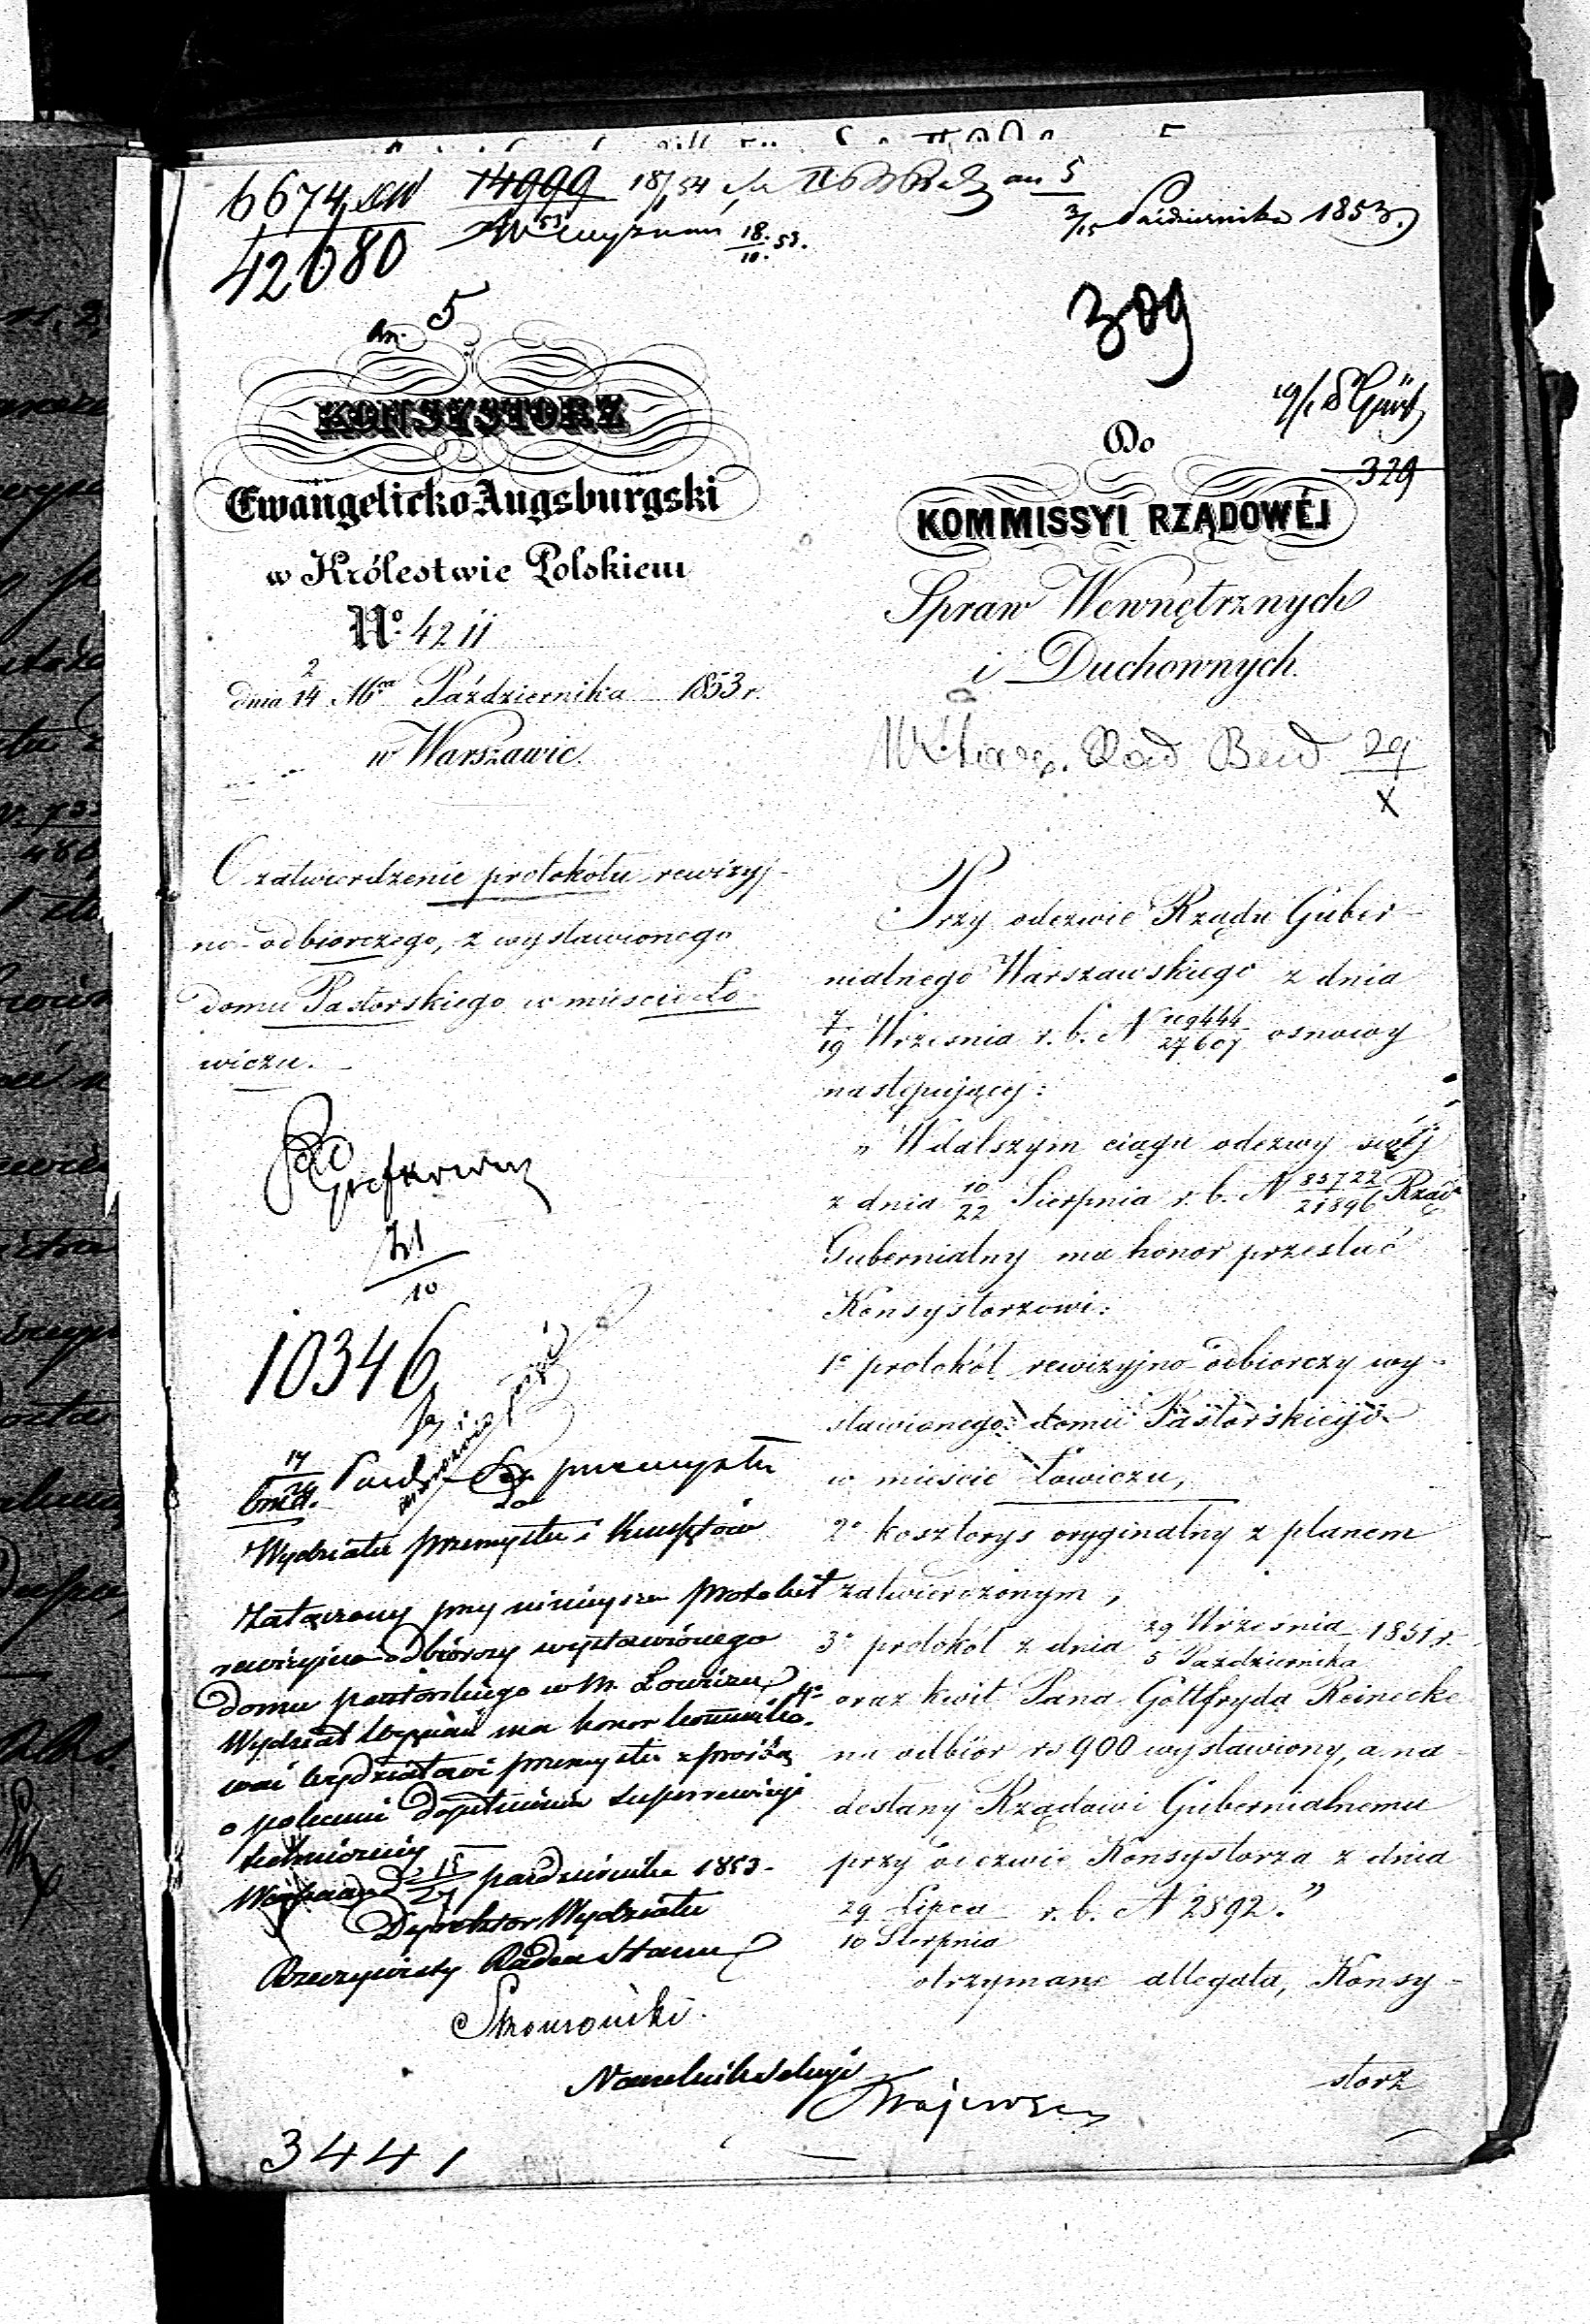 6674
14999 18/1 54
42680
18/10 53.
an 5
3/15 Października 1853.
309
an. 5
KONSYSTORZ
Ewangelicko Augsburgski
w Królestwie Polskiem
No. 4211
dnia 2/14 Mca Października 1853 r.
w Warszawie.
O zatwierdzenie protokółu rewizyj-
no-odbiorczego, z wystawionego
domu Pastorskiego w mieście Ło-
wiczu.
21/10
10346
Do
329
KOMMISSYI RZĄDOWÉJ
Spraw Wewnętrznych
i Duchownych.
29/X
Przy odezwie Rządu Guber-
nialnego Warszawskiego z dnia
7/19 Września r. b. N 29444/27607 osnowy
następującej:
„Wdalszym ciągu odezwy swéj
z dnia 10/22 Sierpnia r. b. N 85722/21896 Rząd
Gubernialny ma honor przesłać
Konsystorzowi:
1o protokół rewizyjno-odbiorczy wy-
stawionego domu Pastorskiego
w mieście Łowiczu,
2o kosztorys oryginalny z planem
zatwierdzonym,
3o protokół z dnia 29 Września/5 Października 1851 r.
4o oraz kwit Pana Gottfryda Reinecke
na odbiór rs 900 wystawiony, a na-
desłany Rządowi Gubernialnemu
przy odezwie Konsystorza z dnia
29 Lipca/10 Sierpnia r. b. N 2892."
otrzymane allegata, Konsy-
storz
do
Wydziału przemysłu i Kunsztów
Załączony przy niniejszem protokół
rewizyjno-odbiorczy wystawionego
domu pastorskiego w M. Łowiczu
Wydział Wyznań ma honor kommuniko-
wać Wydziałowi przemysłu z prośbą
o polecenie dopełnienia superrewizyi
technicznej
15/27 października 1853.
Dyrektor Wydziału
Rzeczywisty Radca Stanu
Naczelnik Sekcyi
3441